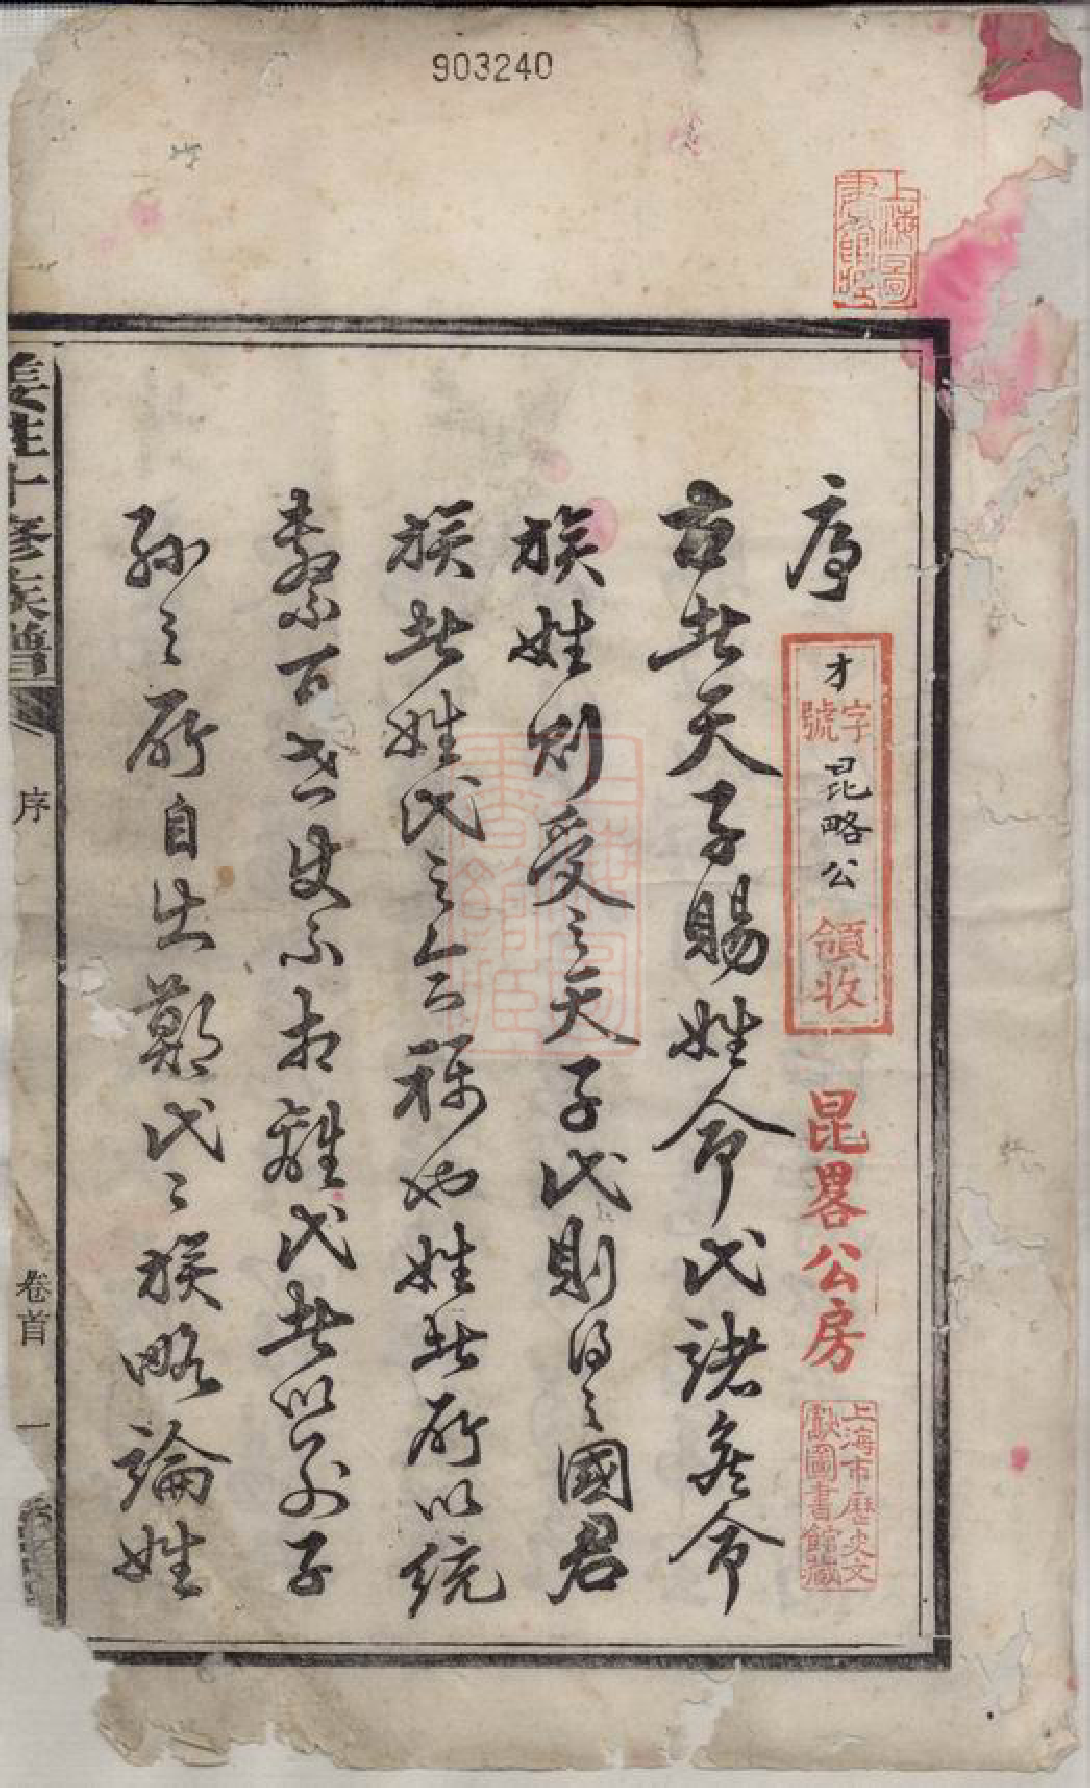 903240
上海圖書館藏
序
才字號昆略公領收
昆畧公房
上海市歷史文獻圖書館藏
古者天子賜姓命氏諸矦命
族姓則受之天子氏則得之國君
族者姓氏之合稱也姓者所以統
繫百世使不相離氏者以別子
孫之所自出鄭氏氏族略論姓
姜姓十修族譜
序
卷首
一